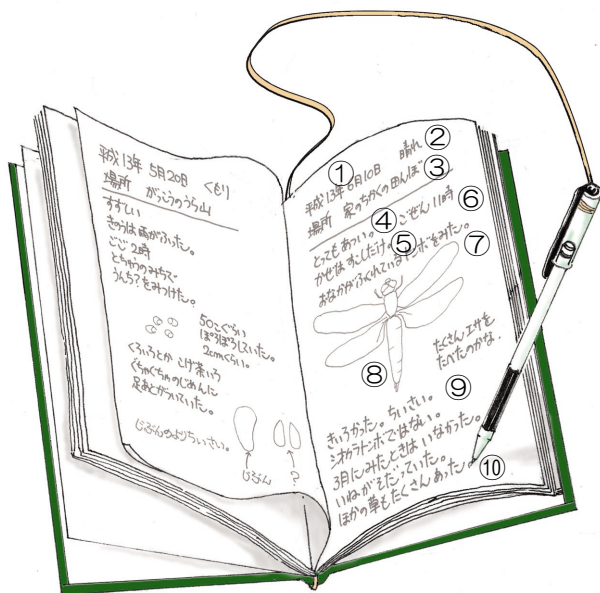 平成13年 5月20日 くもり
場所 がっこうのうら山
すずしい
きのうは雨がふった。
ごご2時
とちゅうのみちで
うんち?をみつけた。
50こぐらい
ぽろぽろしていた。
2cmくらい。
くろいろとか こげ茶いろ
ぐちゃぐちゃのじめんに
足あとがついていた。
じぶんのよりちいさい。
じぶん
?
① 平成13年 6月10日 晴れ ②
場所 家のちかくの田んぼ ③
とってもあつい。 ④ ごぜん 11時 ⑥
かぜはすこしだけ。 ⑤
おなかがふくれているトンボをみた。 ⑦
たくさんエサを
たべたのかな。
⑧
⑨
きいろかった。ちいさい。
シオカラトンボではない。
3月にみたときは いなかった。
いねがそだっていた。
ほかの草もたくさんあった。 ⑩